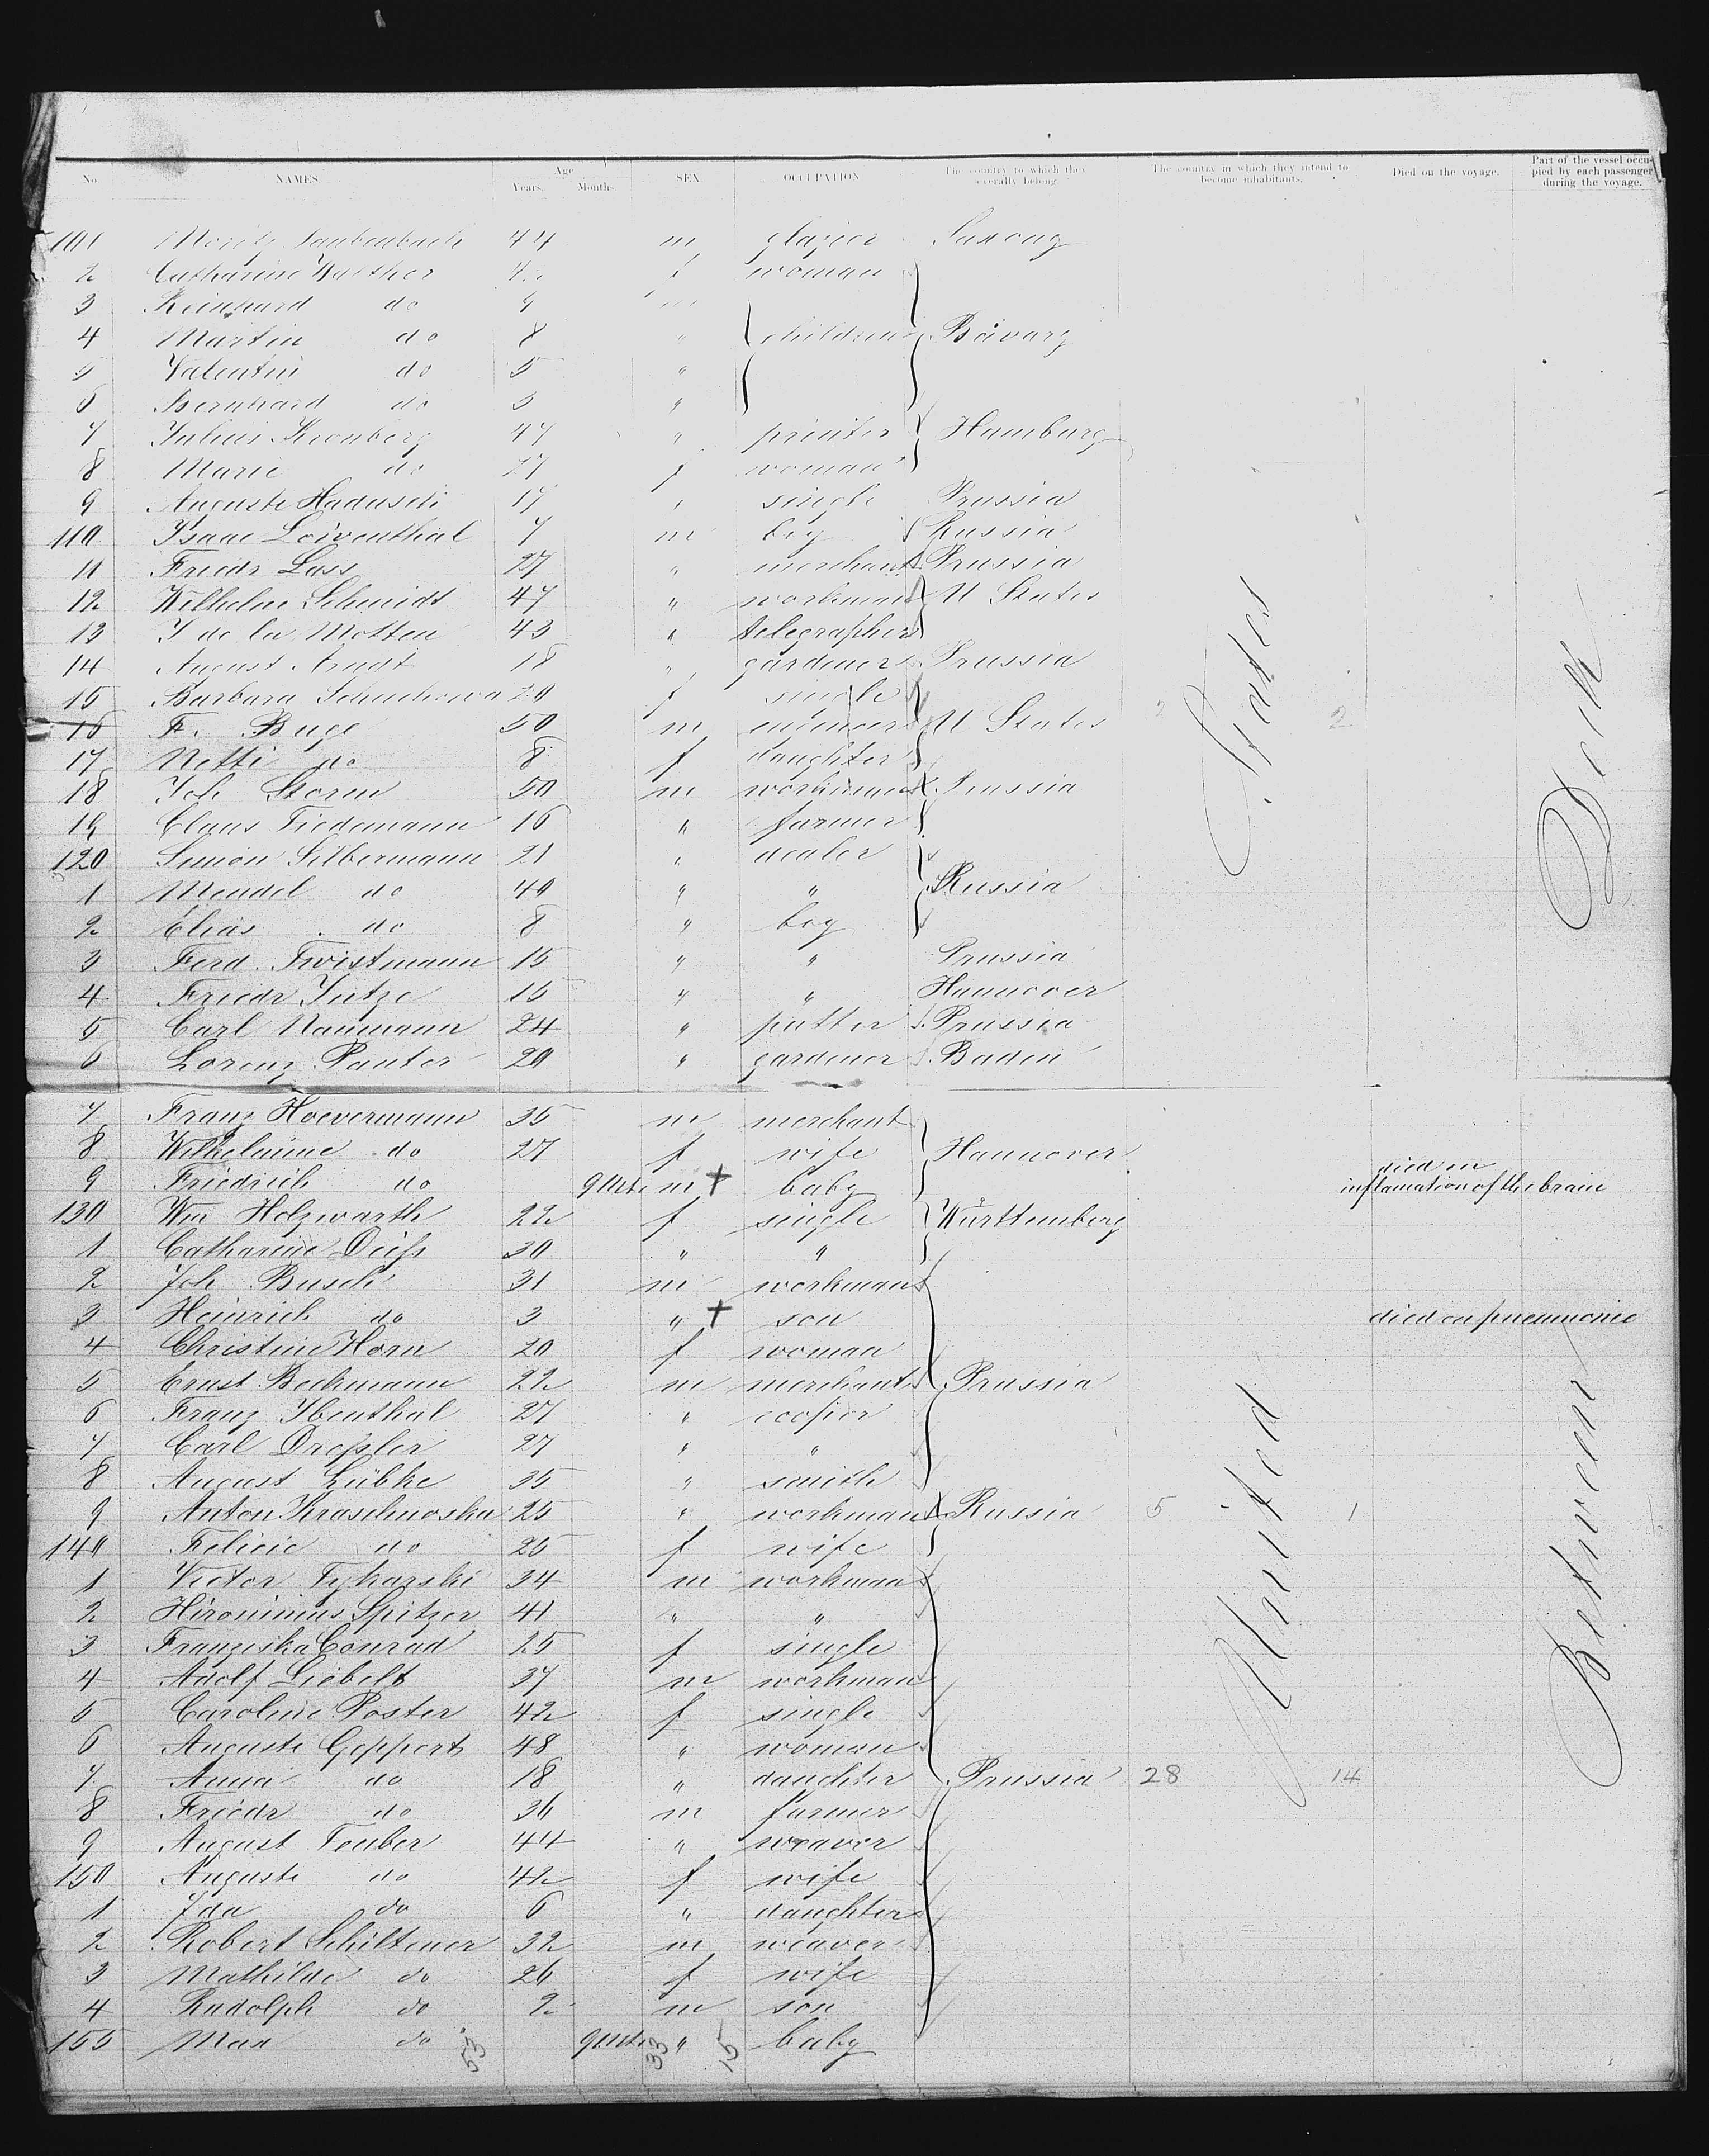 No. NAMES. Age Years. Months. SEX. OCCUPATION The country to which they severally belong. The country in which they intend to become inhabitants. Died on the voyage. Part of the vessel occupied by each passenger during the voyage.
101 Moritz Laubenbach 44 m glazier Saxony
2 Catharine Walther f woman
3 Reinhard do 9 m
4 Martin do 8 " children Bavary
5 Valentin do 5 "
6 Bernhard do 3 "
7 Julius Kronberg 47 " printer Hamburg
8 Marie do 27 f woman
9 Auguste Hadusch 17 " single Prussia
110 Isaac Löwenthal 7 m boy Russia
11 Friedr Lass 27 " merchant Prussia
12 Wilhelm Schmidt 47 " workman U States
13 J de la Motten 43 " telegrapher
14 August Arndt 18 " gardener Prussia
15 Barbara 20 f single
16 F. Buge 50 m engineer U States 2 2
17 Netti do 8 f daughter
18 Joh Storm 50 m workman Prussia
19 Claus Tiedemann 16 " farmer
120 Simon Silbermann 21 " dealer
1 Mendel do 40 " " Russia
2 Elias do 8 " boy
3 Ferd. Twistmann 15 " " Prussia
4 Friedr Jutze 15 " " Hannover
5 Carl Naumann 24 " putter Prussia
6 Lorenz Panter 20 " gardener Baden
7 Franz Hoevermann 35 m merchant
8 Wilhelmine do 27 f wife Hannover
9 Friedrich do 9 Mts m + baby died in inflamation of the brain
130 Wm Holzwarth 22 f single Württemberg
1 Catharine Diehs 30 " "
2 Joh Busch 31 m workman
3 Heinrich do 3 " + son died on pneumonie
4 Christine Horn 20 f woman
5 Ernst Beckmann 22 m merchant Prussia
6 Franz Ibenthal 27 " cooper
7 Carl Dressler 27 " "
8 August Lübke 35 " smith
9 Anton Kraschnoska 25 " workman Russia 5 1
140 Felicie do 25 f wife
1 Victor Tykarski 34 m workman
2 Hironimus Spitzer 41 " "
3 Franziska Conrad 25 f single
4 Adolf Liebelt 37 m workman
5 Caroline Poster 42 f single
6 Auguste Geppert 48 " woman
7 Anna do 18 " daughter Prussia 28 14
8 Friedr do 36 m farmer
9 August Teuber 44 " weaver
150 Auguste do 42 f wife
1 Ida do 6 " daughter
2 Robert Schiltener 32 m weaver
3 Mathilde do 26 f wife
4 Rudolph do 2 m son
155 Max do 9 Mts " baby
53 33 15
United States
Between Deck